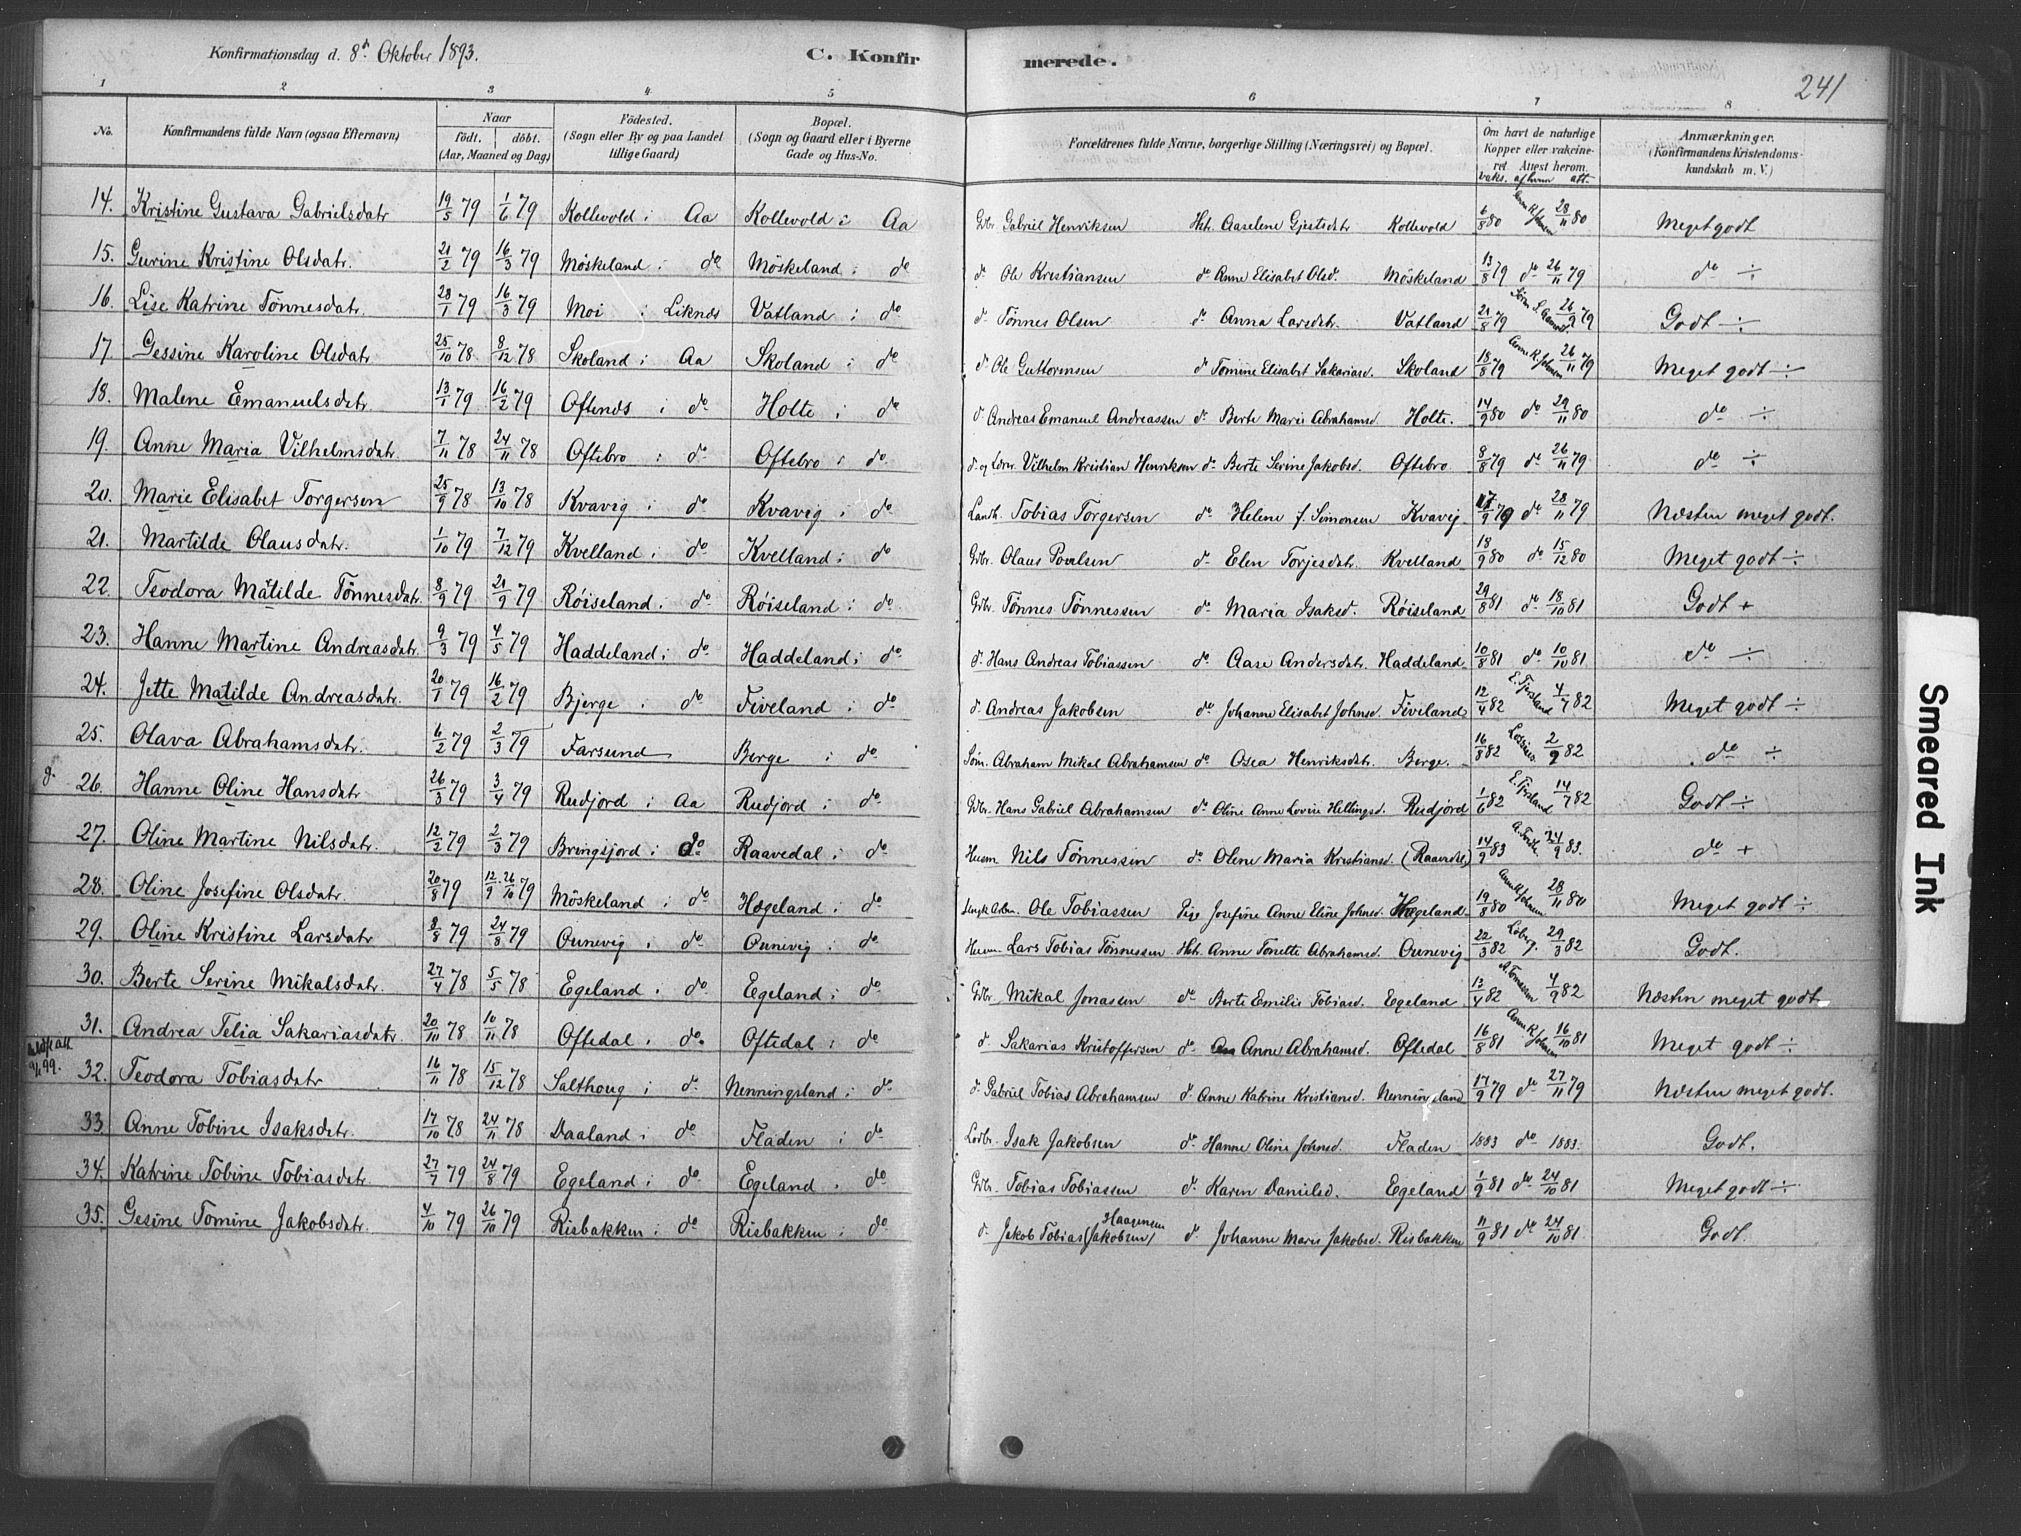 Konfirmationsdag d. 8de Oktober 1893. C. Konfirmerede. 241
1 2 3 4 5 6 7 8
No. Konfirmandens fulde Navn (ogsaa Efternavn) Naar födt. döbt. (Aar, Maaned og Dag) Födested. (Sogn eller By og paa Landet tillige Gaard) Bopæl. (Sogn og Gaard eller i Byerne Gade og Hus-No. Forældrenes fulde Navne, borgerlige Stilling (Næringsvei) og Bopæl. Om havt de naturlige Kopper eller vakcineret Attest herom. Anmærkninger. (Konfirmandens Kristendomskundskab m. V.)
vaks. af hvem att.
14. Kristine Gustava Gabrielsdatr 19/5 79 1/6 79 Kollevold i Aa Kollevold i Aa Gdbr. Gabriel Henriksen Hst. Aaselene Gjertsdatr Kollevold 6/8 80 28/11 80 Meget godt
15. Gurine Kristine Olsdatr. 21/2 79 16/3 79 Möskeland i do Möskeland i do d. Ole Kristiansen do Anne Elisabet Olsd. Möskeland 13/8 79 do 26/11 79 do ÷
16. Lise Katrine Tönnesdatr. 28/1 79 16/3 79 Moi i Liknes Vatland i do d. Tönnes Olsen d. Anna Larsdtr. Vatland 21/8 79 26/9 79 Godt ÷
17. Gessine Karoline Olsdatr 25/10 78 8/12 78 Skoland i Aa Skoland i do d. Ole Guttormsen d. Tomine Elisabet Sakariasd. Skoland 18/8 79 Anne R. Johnsen 26/11 79 Meget godt ÷
18. Malene Emanuelsdatr. 13/1 79 16/2 79 Oftenes i do Holte i do d. Andreas Emanuel Andreassen d. Berte Marie Abrahamsd. Holte. 14/9 80 do 29/11 80 do ÷
19. Anne Maria Vilhelmsdatr. 7/11 78 24/11 78 Oftebro i do Oftebro i do d. og Vilhelm Kristian Henriksen d. Berte Serine Jakobsd. Oftebro 8/8 79 do 26/11 79 do ÷
20. Marie Elisabet Torgersen 25/9 78 13/10 78 Kvavig i do Kvavig i do Landh. Tobias Torgersen do Helene f. Simonsen Kvavig 17/9 79 do 28/11 79 Næsten meget godt.
21. Martilde Olausdatr. 1/10 79 7/12 79 Kvelland i do Kvelland i do Gdbr. Olaus Povelsen do Elen Torjesdatr. Kvelland 18/9 80 do 15/12 80 Meget godt ÷
22. Teodora Matilde Tönnesdatr. 8/9 79 21/9 79 Röiseland i do Röiseland i do Gdbr. Tönnes Tönnessen do Maria Isaksd. Röiseland 29/8 81 do 18/10 81 Godt +
23. Hanne Martine Andreasdatr. 9/3 79 4/5 79 Haddeland i do Haddeland i do d. Hans Andreas Tobiassen do Aase Andersdatr. Haddeland 10/8 81 do 10/10 81 do ÷
24. Jette Matilde Andreasdatr. 20/1 79 16/2 79 Bjerge i do Fiveland i do d. Andreas Jakobsen do Johanne Elisabet Johnsd. Fiveland 12/4 82 E. Fjersland 4/7 82 Meget godt ÷
25. Olava Abrahamsdatr. 6/2 79 2/3 79 Farsund Berge i do Söm. Abraham Mikal Abrahamsen do Osea Henriksdatr. Berge. 16/8 82 2/9 82 do ÷
26. Hanne Oline Hansdatr 26/3 79 3/4 79 Rudjord i Aa Rudjord i do Gdbr. Hans Gabriel Abrahamsen do Oline Anne Lovise Hellingsd. Rudjord 1/6 82 E. Fjersland 14/7 82 Godt ÷
27. Oline Martine Nilsdatr. 12/2 79 2/3 79 Bringsjord i do Raavedal i do Husm Nils Tönnessen do Olene Maria Kristiansd. (Raavedal) 14/9 83 24/9 83. do +
28. Oline Josefine Olsdatr 20/8 79 12/9 26/10 79 Möskeland i do Hægeland i do Ole Tobiassen Pige Josefine Anne Eline Johnsd. Hægeland 19/8 80 Anne R. Johnsen 28/11 80 Meget godt ÷
29. Oline Kristine Larsdatr 8/8 79 24/8 79 Ounevig i do Ounevig i do Husm Lars Tobias Tönnessen Hst. Anne Tonette Abrahamsd. Ounevig 22/3 82 Löberg. 29/3 82 Godt.
30. Berte Serine Mikalsdatr. 27/4 78 5/5 78 Egeland i do Egeland i do Gdbr. Mikal Jonassen do Berte Emilie Tobiasd. Egeland 13/4 82 4/9 82 Næsten meget godt
31. Andrea Telia Sakariasdatr. 20/10 78 10/11 78 Oftedal i do Oftedal i do d. Sakarias Kristoffersen do Anne Abrahamsd. Oftedal 16/8 81 Anne R. Johnsen 16/10 81 Meget godt ÷
32. Teodora Tobiasdatr 16/11 78 15/12 78 Salthoug i do Nenningsland i do d. Gabriel Tobias Abrahamsen d. Anne Katrine Kristiansd. Nenningsland 17/9 79 do 27/11 79 Næsten meget godt.
33. Anne Tobine Isaksdatr. 17/10 78 24/11 78 Daaland i do Fladen i do Isak Jakobsen d. Hanne Oline Johnsd. Fladen 1883 do 1883. Godt.
34. Katrine Tobine Tobiasdatr 27/7 79 24/8 79 Egeland i do Egeland i do Gdbr. Tobias Tobiassen d. Karen Danielsd. Egeland 1/9 81 do 24/10 81 Meget godt ÷
35. Gesine Tomine Jakobsdatr. 4/10 79 26/10 79 Risbakken i do Risbakken i do d. Jakob Tobias (Jakobsen) Haagensen d. Johanne Marie Jakobsd. Risbakken 11/9 81 do 24/10 81 Godt.
Smeared Ink